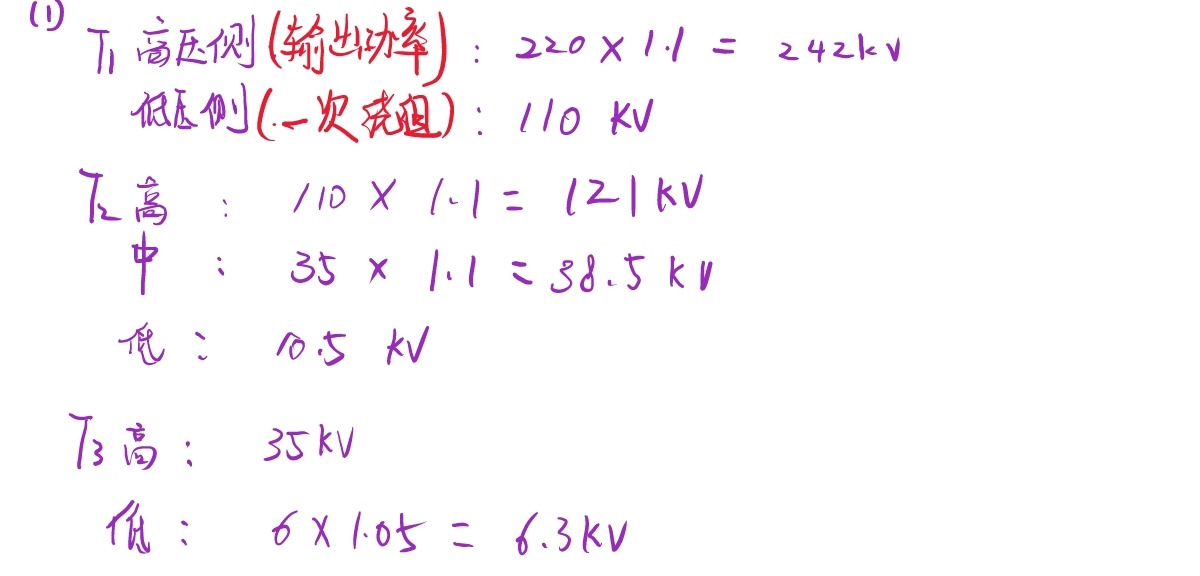 (1)
T₁ 高压侧(输出功率): 220 × 1.1 = 242kV
低压侧(一次绕组): 110 KV
T₂ 高 : 110 × 1.1 = 121KV
中 : 35 × 1.1 = 38.5 KV
低: 10.5 KV
T₃ 高: 35KV
低: 6 × 1.05 = 6.3KV